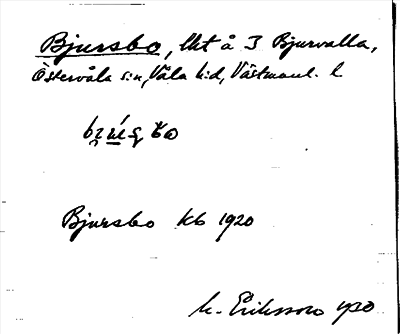 Bjursbo, lht å 3 Bjurvalla,
Östervåla sn, Våla hd, Västmanl. l
Bjursbo kb 1920
M. Eriksson 1930